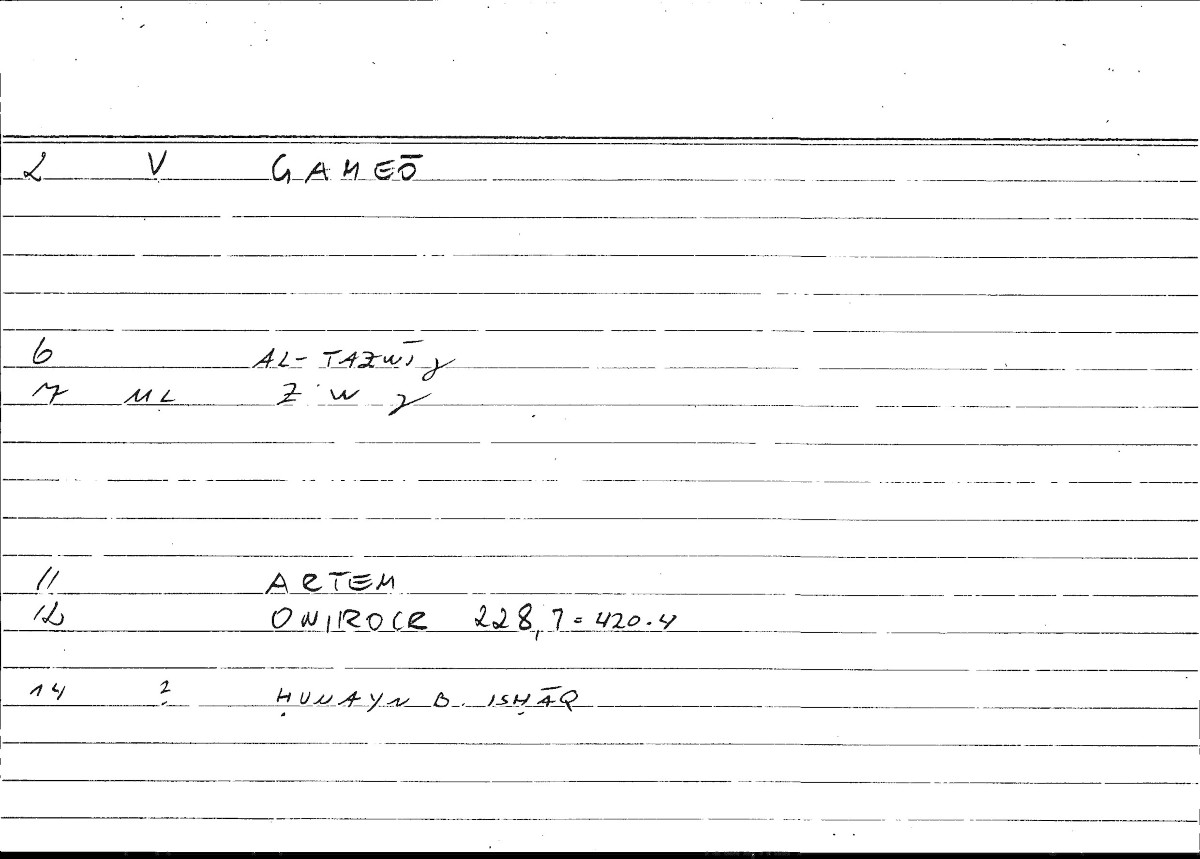 2 V GAMEŌ
6 AL-TAZWĪǧ
7 ML Z W ǧ
11 ARTEM
12 ONIROCR 228,7=420.4
14 2 ḤUNAYN B. ISḤĀQ